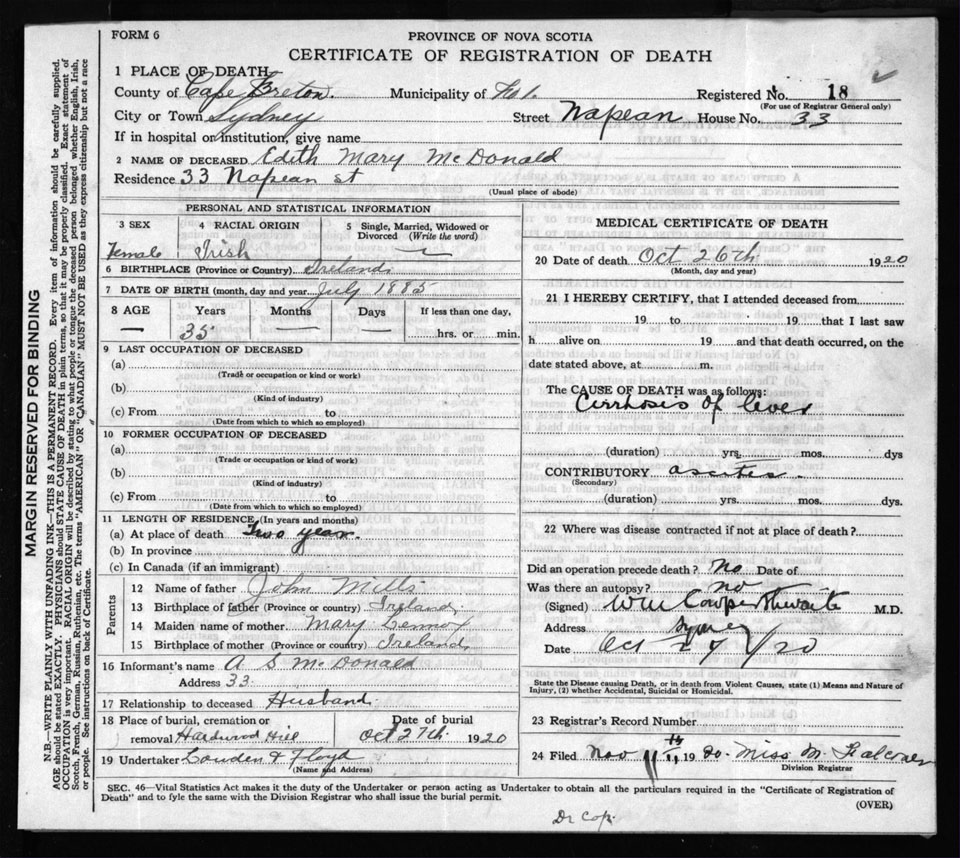 FORM 6
PROVINCE OF NOVA SCOTIA
CERTIFICATE OF REGISTRATION OF DEATH
1 PLACE OF DEATH
County of Cape Breton. Municipality of Registered No. 18
(For use of Registrar General only)
City or Town Sydney Street Napean House No. 33
If in hospital or institution, give name
2 NAME OF DECEASED Edith Mary McDonald
Residence 33 Napean st
(Usual place of abode)
PERSONAL AND STATISTICAL INFORMATION
3 SEX 4 RACIAL ORIGIN 5 Single, Married, Widowed or Divorced (Write the word)
Female Irish —
6 BIRTHPLACE (Province or Country) Ireland
7 DATE OF BIRTH (month, day and year) July 1885
8 AGE Years Months Days If less than one day,
— 35 — — hrs. or min.
9 LAST OCCUPATION OF DECEASED
(a)
(Trade or occupation or kind of work)
(b)
(Kind of industry)
(c) From to
(Date from which to which so employed)
10 FORMER OCCUPATION OF DECEASED
(a)
(Trade or occupation or kind of work)
(b)
(Kind of industry)
(c) From to
(Date from which to which so employed)
11 LENGTH OF RESIDENCE (In years and months)
(a) At place of death Two year.
(b) In province
(c) In Canada (if an immigrant)
Parents
12 Name of father John Mills
13 Birthplace of father (Province or country) Ireland
14 Maiden name of mother Mary Lennox
15 Birthplace of mother (Province or country) Ireland
16 Informant's name A S McDonald
Address 33
17 Relationship to deceased Husband
18 Place of burial, cremation or removal Hardwood Hill Date of burial Oct 27th 1920
19 Undertaker Louden & Floyd
(Name and Address)
MEDICAL CERTIFICATE OF DEATH
20 Date of death Oct 26th 1920
(Month, day and year)
21 I HEREBY CERTIFY, that I attended deceased from
19 to 19 that I last saw
h alive on 19 and that death occurred, on the
date stated above, at m.
The CAUSE OF DEATH was as follows:
Cirrhosis of liver
(duration) yrs. mos. dys
CONTRIBUTORY ascites.
(Secondary)
(duration) yrs. mos. dys.
22 Where was disease contracted if not at place of death?
Did an operation precede death? no Date of
Was there an autopsy? no
(Signed) Wm Cowperthwaite M.D.
Address Sydney
Date Oct 27/20
State the Disease causing Death, or in death from Violent Causes, state (1) Means and Nature of
Injury, (2) whether Accidental, Suicidal or Homicidal.
23 Registrar's Record Number
24 Filed Nov 11th 1920 Miss M.
Division Registrar
SEC. 46—Vital Statistics Act makes it the duty of the Undertaker or person acting as Undertaker to obtain all the particulars required in the "Certificate of Registration of
Death" and to fyle the same with the Division Registrar who shall issue the burial permit.
(OVER)
Dr Cop.
MARGIN RESERVED FOR BINDING
N.B.—WRITE PLAINLY WITH UNFADING INK—THIS IS A PERMANENT RECORD. Every item of information should be carefully supplied.
AGE should be stated EXACTLY. PHYSICIANS should STATE CAUSE OF DEATH in plain terms, so that it may be properly classified. Exact statement of
OCCUPATION is very important. RACIAL ORIGIN will be described by stating to what people or tongue the deceased person belonged whether English, Irish,
Scotch, French, German, Russian, Ruthenian, etc. The terms "AMERICAN" OR "CANADIAN" MUST NOT BE USED as they express citizenship but not a race
or people. See instructions on back of Certificate.